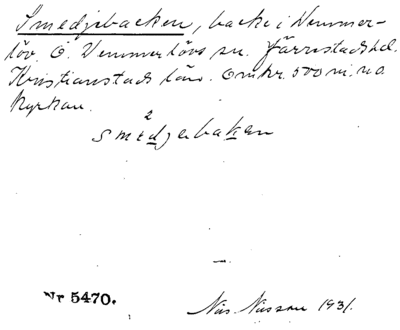 Smedjebacken, backe i Vemmer-
löv. Ö. Vemmerlövs sn. Järrestads hd.
Kristianstads län. Omkr. 500 m. n.o.
kyrkan.
2
smedjebaken
Nr 5470.
Nils Nilsson 1931.